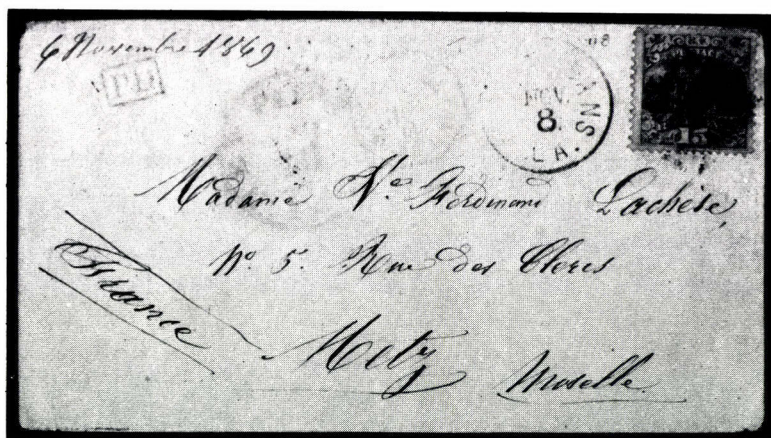 6 Novembre 1869.
PD
NOV.
8.
LA.
15
Madame Ve Ferdinand Lachèse,
No. 5. Rue des Clercs
France
Metz
Moselle.